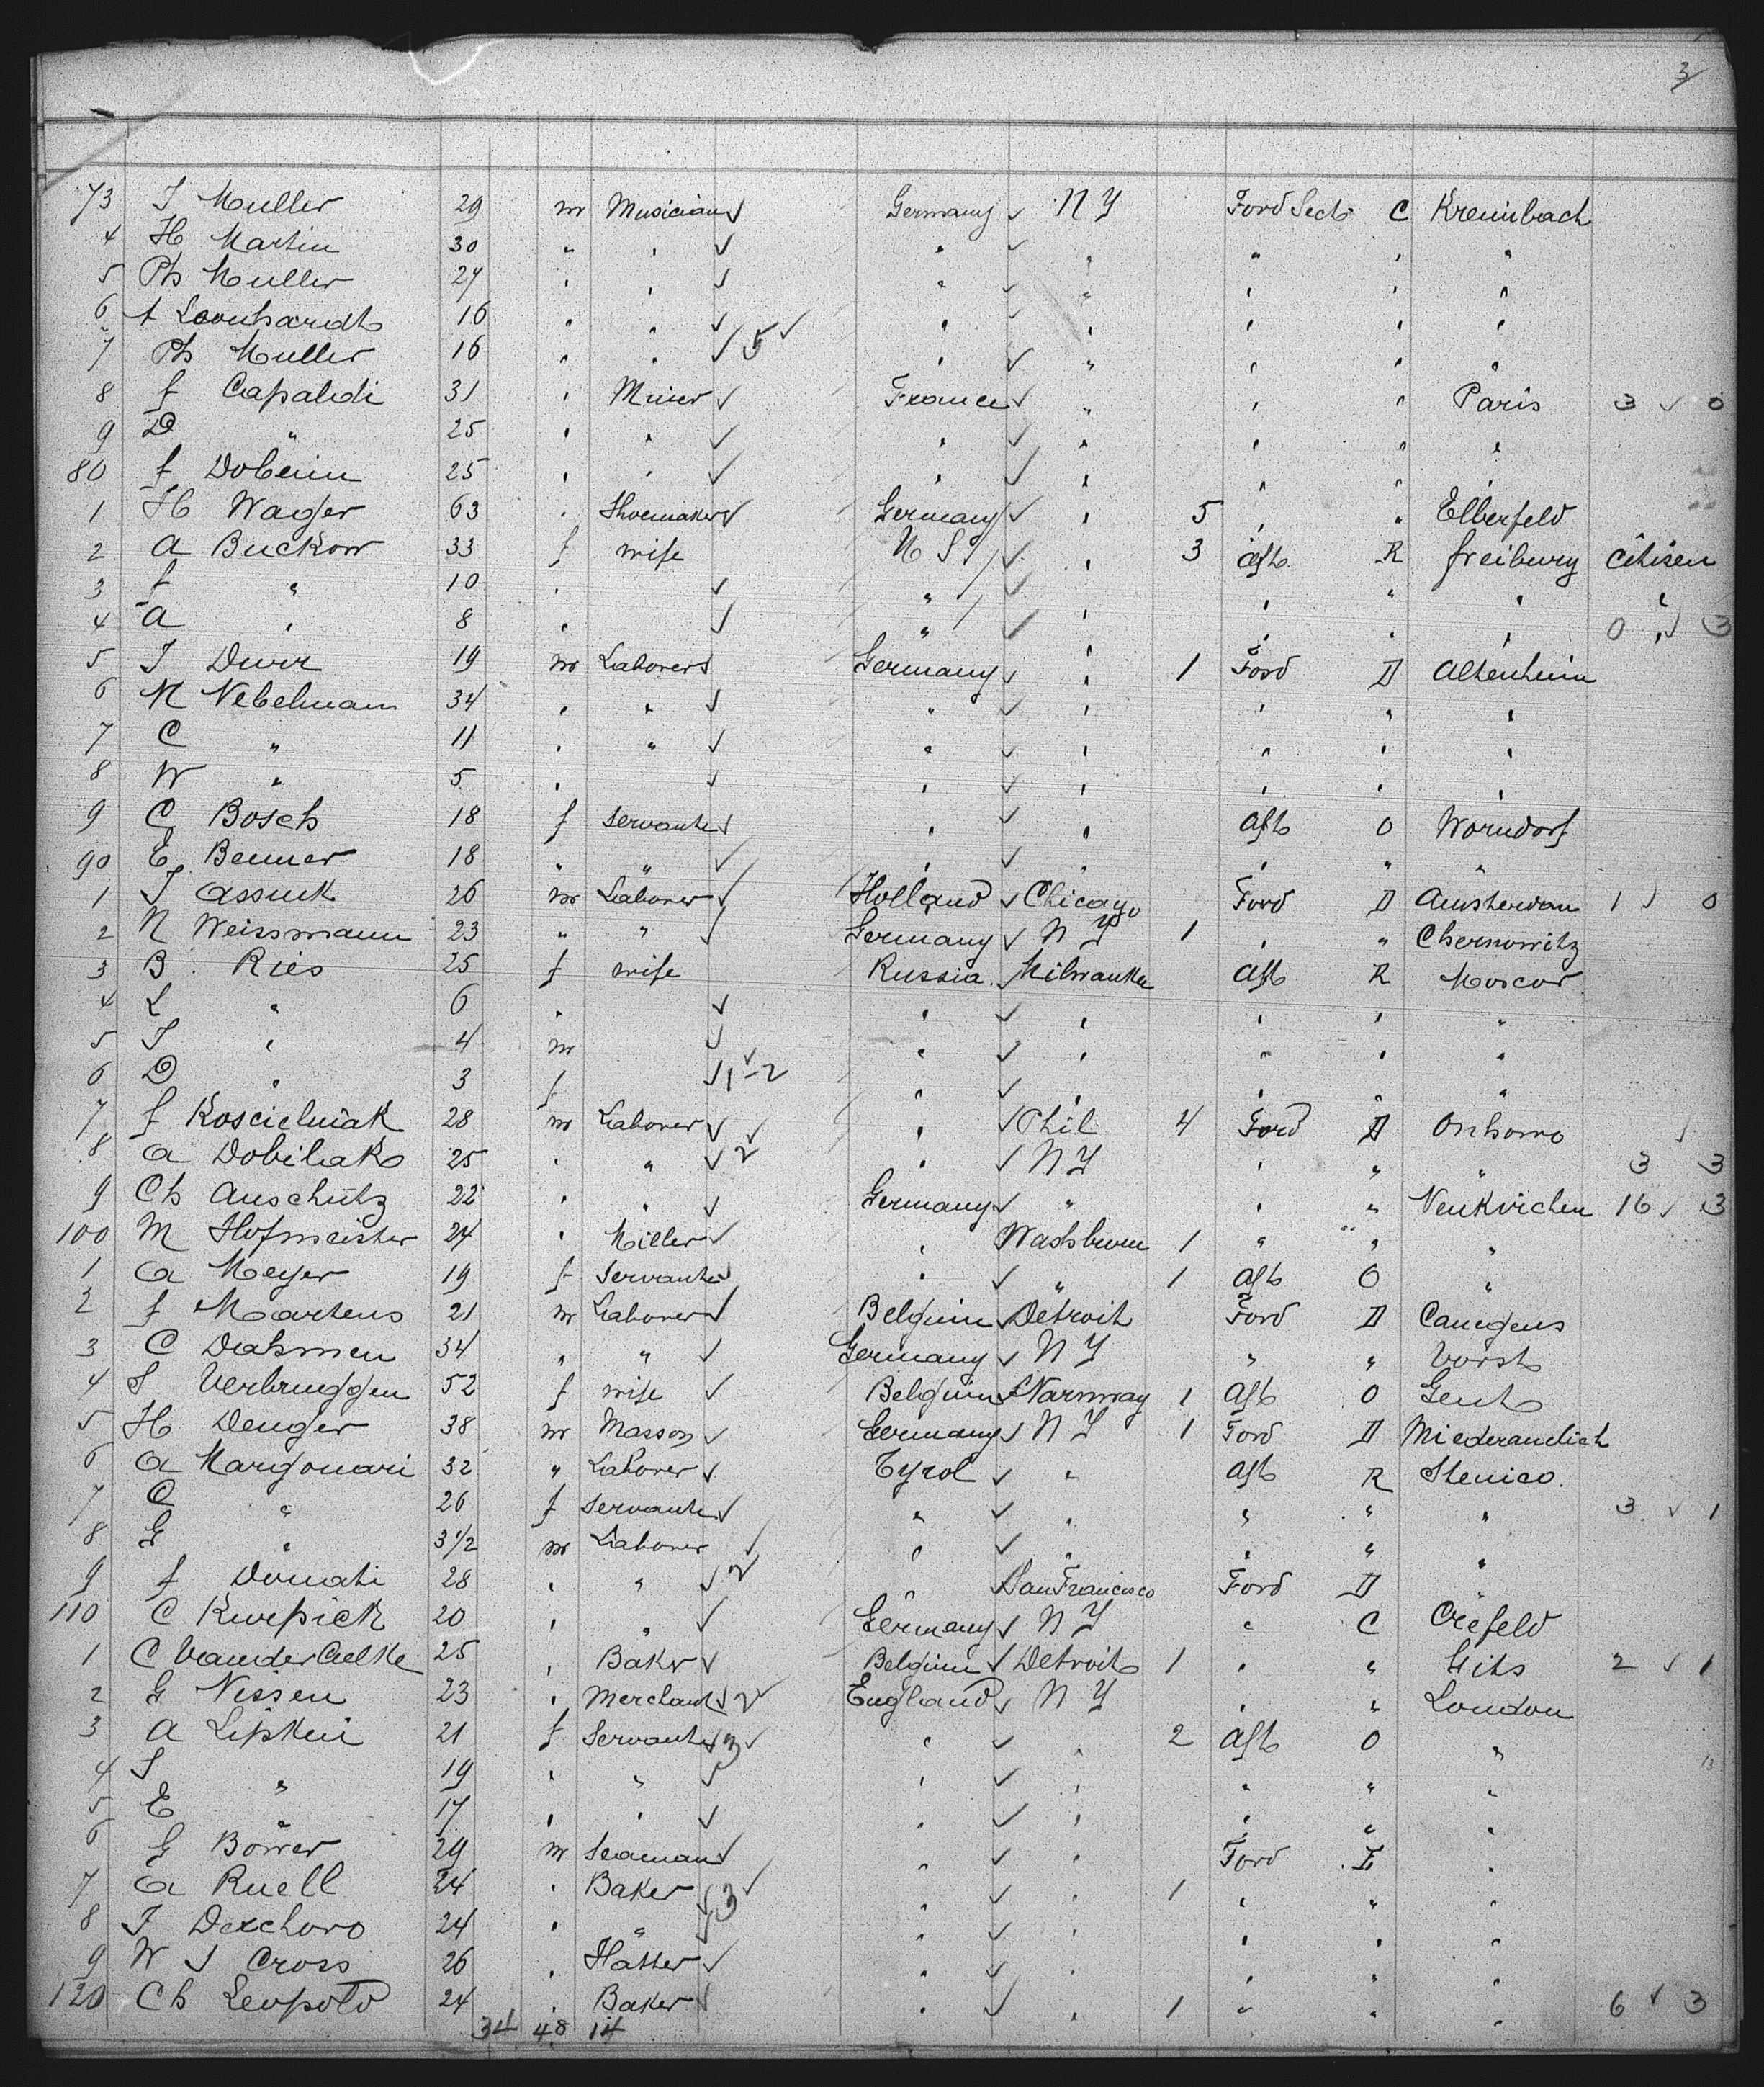 3
73 J Muller 29 m Musician Germany ✓ N Y Ford Sect C Kreimbach
4 H Martin 30 " " ✓ " ✓ " " " "
5 Ph Muller 27 " " ✓ " ✓ " " " "
6 A Leonhardt 16 " " ✓ " ✓ " " " "
7 Ph Muller 16 " " ✓ 5 ✓ " ✓ " " " "
8 f Capaldi 31 " Miner ✓ France ✓ " " " Paris 3 ✓ 0
9 D " 25 " " ✓ " ✓ " " " "
80 f Doberin 25 " " ✓ " ✓ " " " "
1 H Wager 63 " Shoemaker ✓ Germany ✓ " 5 " " Elberfeld
2 A Buckow 33 f wife U S ✓ " 3 Aft R freiburg Citisen
3 f " 10 " ✓ " ✓ " " " " "
4 A " 8 " ✓ " ✓ " " " " 0 ✓ 3
5 J Durr 19 m Laborer ✓ Germany ✓ " 1 Ford D Altenheim
6 M Nebelmann 34 " " ✓ " ✓ " " " "
7 C " 11 " " ✓ " ✓ " " " "
8 W " 5 " ✓ " ✓ " " " "
9 C Bosch 18 f Servant ✓ " ✓ " Aft O Worndorf
90 E Benner 18 " " ✓ " ✓ " " " "
1 J Assuck 26 m Laborer ✓ Holland ✓ Chicago Ford D Amsterdam 1 ✓ 0
2 N Weissmann 23 " " ✓ Germany ✓ N Y 1 " " Chernowitz
3 B Ries 25 f wife Russia ✓ Milwaukee Aft R Moscow
4 L " 6 " ✓ " ✓ " " " "
5 J " 4 m ✓ " ✓ " " " "
6 D " 3 f ✓ 1 ✓ 2 " ✓ " " " "
7 f Koscielniak 28 m Laborer ✓ ✓ " ✓ Phil 4 Ford D Orchowo
8 A Dobilak 25 " " ✓ 2 " ✓ N Y " " " 3 3
9 Ch Anschütz 22 " " ✓ Germany ✓ " " " Neukirchen 16 ✓ 3
100 M Hofmeister 24 " Miller ✓ " Washburn 1 " " "
1 A Meyer 19 f Servant ✓ " ✓ " 1 Aft O "
2 f Martens 21 m Laborer ✓ Belgium Detroit Ford D Canegens
3 C Dahmen 34 " " ✓ Germany ✓ N Y " " Vorst
4 S Verbruggen 52 f wife ✓ Belgium Narnway 1 Aft O Gent
5 H Denger 38 m Masson ✓ Germany ✓ N Y 1 Ford D Niederaudich
6 A Margonari 32 " Laborer ✓ Tyrol ✓ " Aft R Stenico
7 C " 26 f Servant ✓ " ✓ " " " " 3 ✓ 1
8 G " 3 1/2 m Laborer ✓ " ✓ " " " "
9 f Donati 28 " " ✓ 2 " San Francisco Ford D "
110 C Kurpick 20 " " ✓ Germany ✓ N Y " C Crefeld
1 C VanderAelke 25 " Baker ✓ Belgium ✓ Detroit 1 " " Gits 2 ✓ 1
2 G Nissen 23 " Merchant ✓ 2 ✓ England ✓ N Y " " London
3 A Lipkin 21 f Servant ✓ 3 ✓ " ✓ " 2 Aft O "
4 S " 19 " " ✓ " ✓ " " " "
5 E " 17 " " ✓ " ✓ " " " "
6 G Bower 29 m Seaman ✓ " ✓ " Ford I "
7 A Ruell 24 " Baker ✓ 3 ✓ " ✓ " 1 " " "
8 J Dexchoro 24 " " ✓ " ✓ " " " "
9 W J Cross 26 " Hatter ✓ " ✓ " " " "
120 Ch Leopold 24 " Baker ✓ " ✓ " 1 " " " 6 ✓ 3
34 48 14